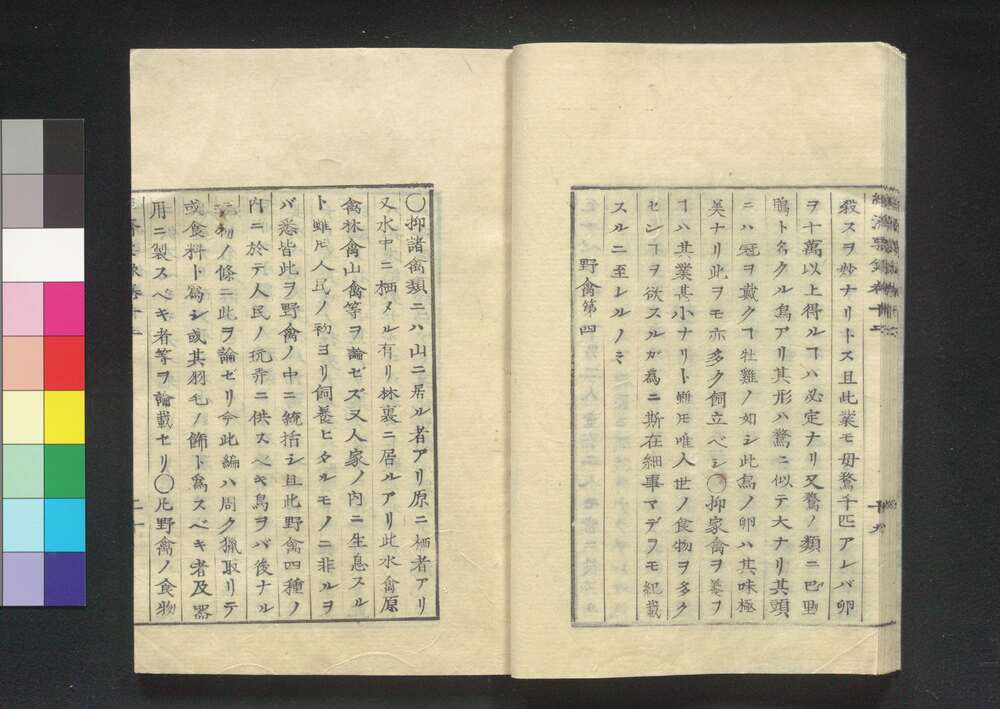 殺スヲ妙ナリトス且此業モ母鶩千匹アレバ卵
ヲ十萬以上得ルヿハ必定ナリ又鶩ノ類ニ巴
鴨ト名クル鳥アリ其形ハ鶩ニ似テ大ナリ其頭
ニハ冠ヲ戴クヿ牡雞ノ如シ此鳥ノ卵ハ其味極
美ナリ此ヲモ亦多ク飼立ベシ〇抑家禽ヲ養フ
ヿハ其業甚小ナリト雖𪜈唯人世ノ食物ヲ多ク
センヿヲ欲スルガ為ニ斯在細事マデヲモ紀載
スルニ至レルノミ
野禽第四
十九
〇抑諸禽類ニハ山ニ居ル者アリ原ニ栖者アリ
又水中ニ栖メル有リ林裏ニ居ルアリ此水禽原
禽林禽山禽等ヲ論ゼズ又人家ノ内ニ生息スル
ト雖𪜈人民ノ初ヨリ飼養ヒタルモノニ非ルヲ
バ悉皆此ヲ野禽ノ中ニ統括シ且此野禽四種ノ
内ニ於テ人民ノ玩弄ニ供スベキ鳥ヲバ後ナル
ノ條ニ此ヲ論ゼリ今此編ハ周ク獵取リテ
或食料ト為シ或其羽毛ノ飾ト為スベキ者及器
用ニ製スベキ者等ヲ論載セリ〇凡野禽ノ食物